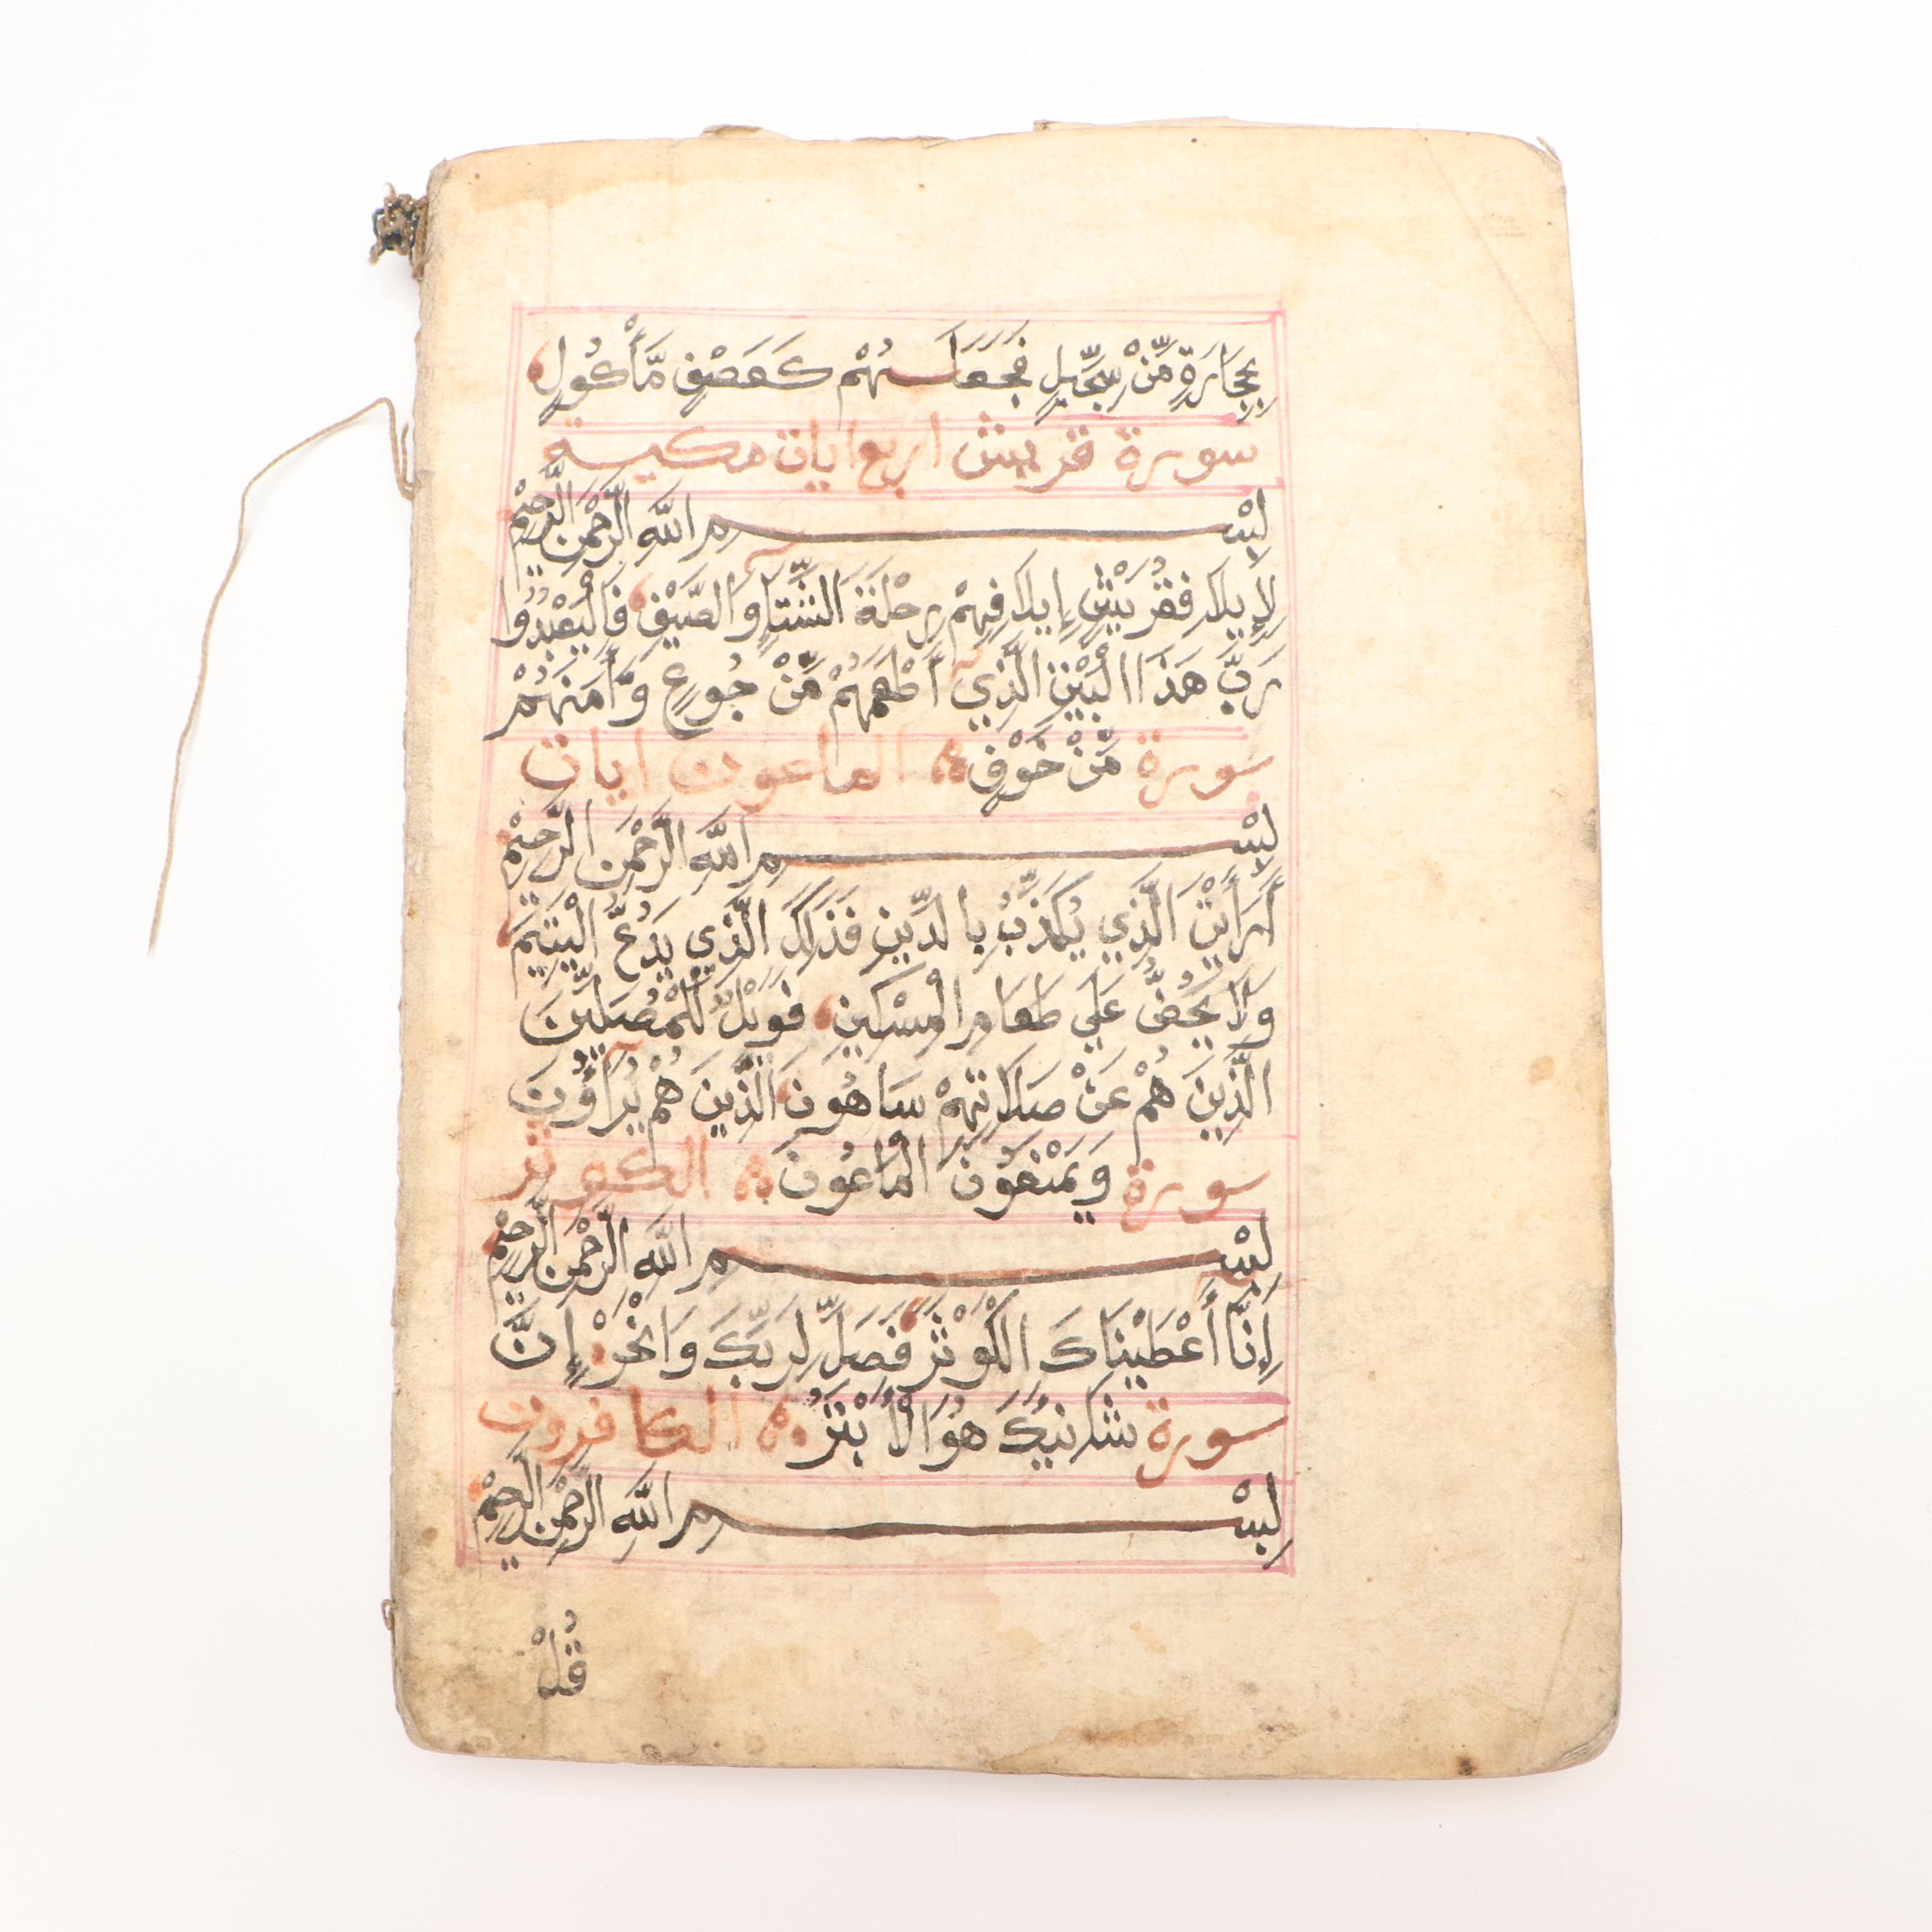 بِحِجَارَةٍ مِّنْ سِجِّيلٍ فَجَعَلَهُمْ كَعَصْفٍ مَّأْكُولٍ
سورة قريش اربع ايات مكية
بِسْمِ اللَّهِ الرَّحْمَنِ الرَّحِيمِ
لِإِيلَافِ قُرَيْشٍ إِيلَافِهِمْ رِحْلَةَ الشِّتَآءِ وَالصَّيْفِ فَلْيَعْبُدُوا
رَبَّ هَذَا الْبَيْتِ الَّذِي أَطْعَمَهُمْ مِّنْ جُوعٍ وَّأَمَنَهُمْ
سورة مِّنْ خَوْفٍ الماعون ايات
بِسْمِ اللَّهِ الرَّحْمَنِ الرَّحِيمِ
أَرَأَيْتَ الَّذِي يُكَذِّبُ بِالدِّينِ فَذَلِكَ الَّذِي يَدُعُّ الْيَتِيمَ
وَلَا يَحُضُّ عَلَي طَعَامِ الْمِسْكِينِ فَوَيْلٌ لِّلْمُصَلِّينَ
الَّذِينَ هُمْ عَنْ صَلَاتِهِمْ سَاهُونَ الَّذِينَ هُمْ يُرَآؤُنَ
سورة وَيَمْنَعُونَ الْمَاعُونَ الكوثر
بِسْمِ اللَّهِ الرَّحْمَنِ الرَّحِيمِ
إِنَّآ أَعْطَيْنَاكَ الْكَوْثَرَ فَصَلِّ لِرَبِّكَ وَانْحَرْ إِنَّ
سورة شَانِئَكَ هُوَ الْأَبْتَرُ الكافرون
بِسْمِ اللَّهِ الرَّحْمَنِ الرَّحِيمِ
قُلْ